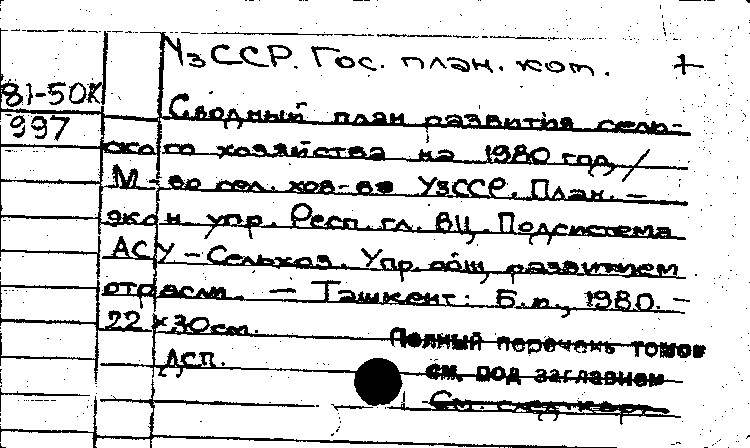 УзССР. Гос. план. ком. +
81-50К
997
Сводный план развития сель-
ского хозяйства на 1980 год /
М-во сел. хоз-ва УзССР. План.-
экон. упр. Респ. гл. ВЦ. Подсистема
АСУ-Сельхоз. Упр. общ. развитием
отрасли. — Ташкент: Б.и., 1980. -
22 x 30 см.
Полный перечень томов
ДСП.
см. под заглавием
См. след. карт.